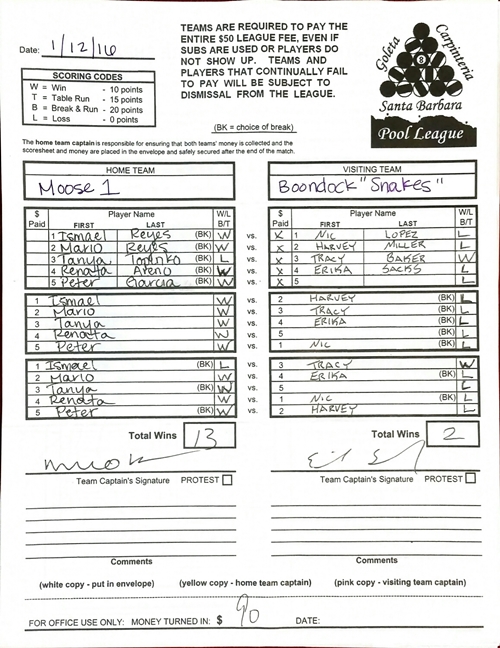 Date: 1/12/16
TEAMS ARE REQUIRED TO PAY THE
ENTIRE $50 LEAGUE FEE, EVEN IF
SUBS ARE USED OR PLAYERS DO
NOT SHOW UP. TEAMS AND
PLAYERS THAT CONTINUALLY FAIL
TO PAY WILL BE SUBJECT TO
DISMISSAL FROM THE LEAGUE.
(BK = choice of break)
SCORING CODES
W = Win - 10 points
T = Table Run - 15 points
B = Break & Run - 20 points
L = Loss - 0 points
Goleta Carpinteria
8
Santa Barbara
Pool League
The home team captain is responsible for ensuring that both teams' money is collected and the
scoresheet and money are placed in the envelope and safely secured after the end of the match.
HOME TEAM VISITING TEAM
Moose 1 Boondock "Snakes"
$ Paid Player Name FIRST LAST W/L B/T $ Paid Player Name FIRST LAST W/L B/T
1 Ismael Reyes (BK) W vs. X 1 NIC LOPEZ L
2 Mario Reyes (BK) W vs. X 2 HARVEY MILLER L
3 Tanya (BK) L vs. X 3 TRACY BAKER W
4 Renata (BK) W vs. X 4 ERIKA SACKS L
5 Peter Garcia (BK) W vs. X 5 L
1 Ismael W vs. 2 HARVEY (BK) L
2 Mario W vs. 3 TRACY (BK) L
3 Tanya W vs. 4 ERIKA (BK) L
4 Renata W vs. 5 (BK) L
5 Peter W vs. 1 NIC (BK) L
1 Ismael (BK) L vs. 3 TRACY W
2 Mario W vs. 4 ERIKA (BK) L
3 Tanya (BK) W vs. 5 L
4 Renata W vs. 1 NIC (BK) L
5 Peter (BK) W vs. 2 HARVEY L
Total Wins 13 Total Wins 2
Team Captain's Signature PROTEST Team Captain's Signature PROTEST
Comments Comments
(white copy - put in envelope) (yellow copy - home team captain) (pink copy - visiting team captain)
FOR OFFICE USE ONLY: MONEY TURNED IN: $ 90 DATE: